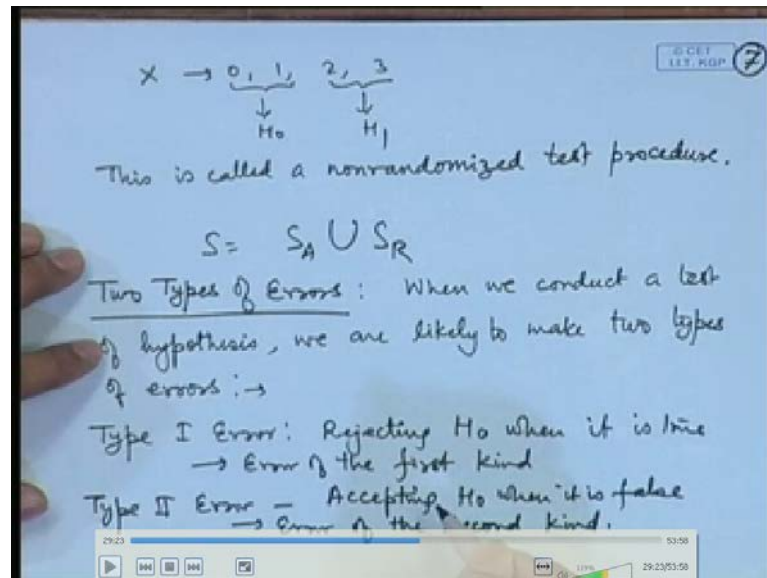 X → 0, 1, 2, 3
© CET
I.I.T. KGP
7
↓ ↓
H₀ H₁
This is called a nonrandomized test procedure.
S = S_A ∪ S_R
Two Types of Errors : When we conduct a test
of hypothesis, we are likely to make two types
of errors :→
Type I Error : Rejecting H₀ when it is true
→ Error of the first kind
Type II Error – Accepting H₀ when it is false
→ Error of the second kind.
29:23 53:58
129% 29:23/53:58